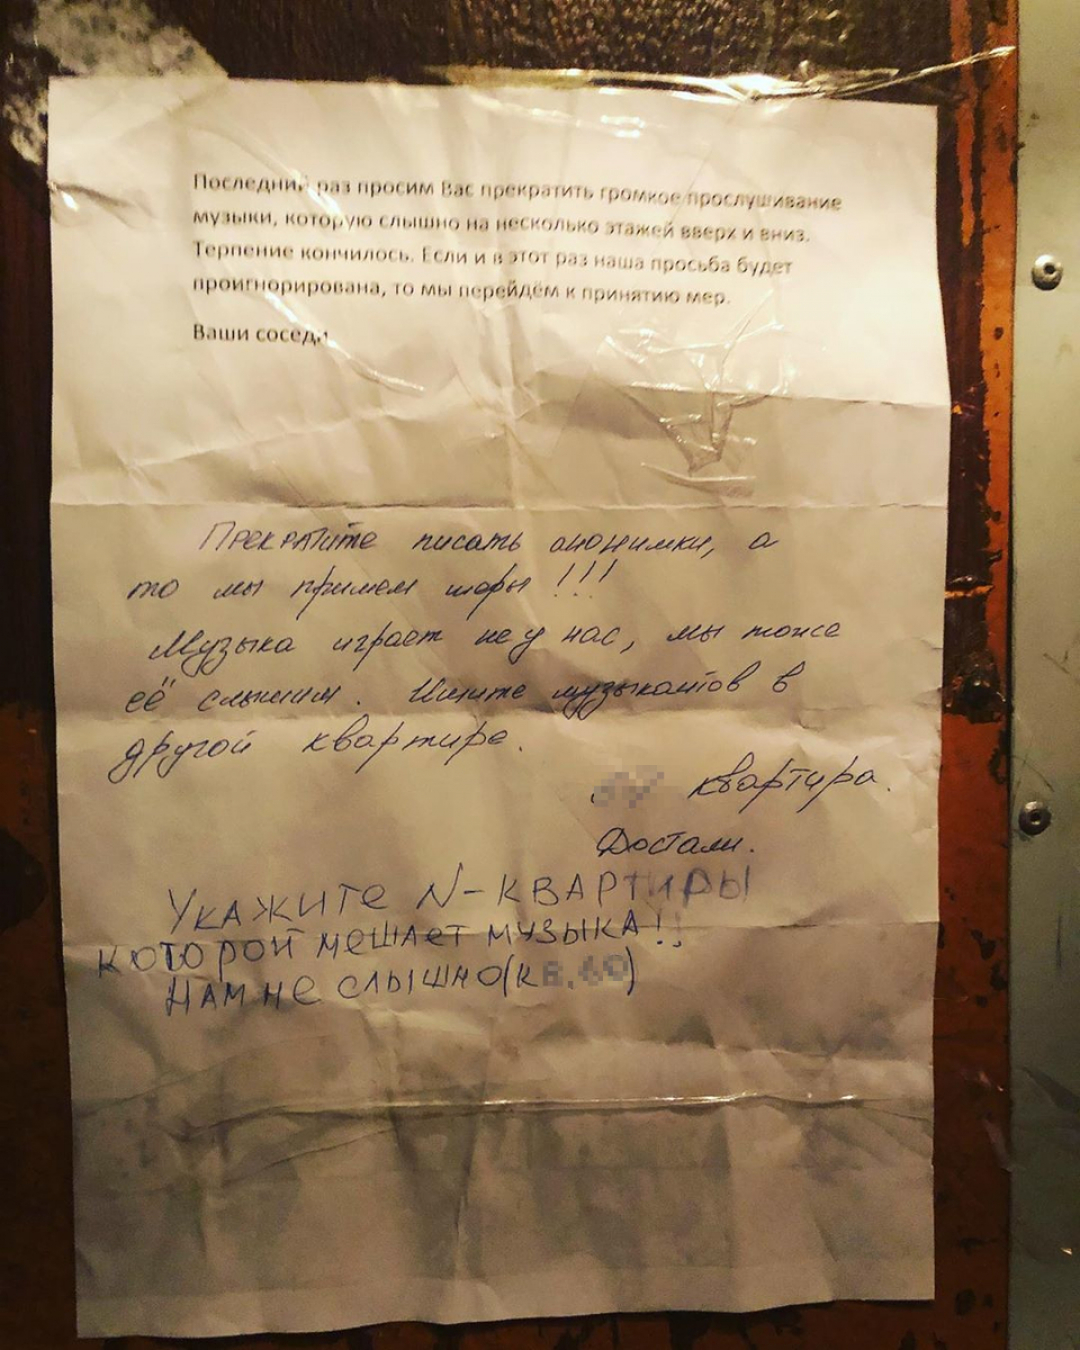 Последний раз просим Вас прекратить громкое прослушивание
музыки, которую слышно на несколько этажей вверх и вниз.
Терпение кончилось. Если и в этот раз наша просьба будет
проигнорирована, то мы перейдём к принятию мер.
Ваши соседи
Прекратите писать анонимки, а
то мы примем меры!!!
Музыка играет не у нас, мы тоже
её слышим. Ищите музыкантов в
другой квартире.
квартира.
Достали.
УКАЖИТЕ N-КВАРТИРЫ
КОТОРОЙ МЕШАЕТ МУЗЫКА!!
НАМ НЕ СЛЫШНО(КВ.